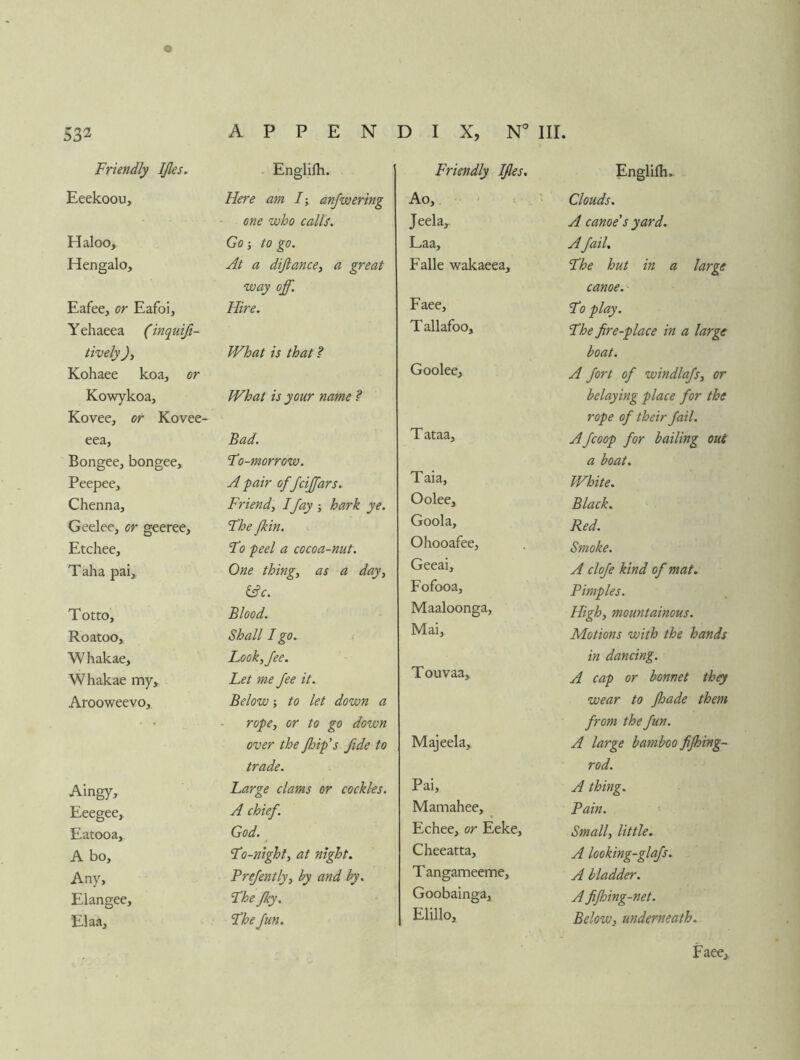 532 APPENDIX, N° III.
Friendly Iſles. Engliſh.
Eeekoou, Here am I; anſwering
one who calls.
Haloo, Go; to go.
Hengalo, At a diſtance, a great
way off.
Eafee, or Eafoi, Hire.
Yehaeea (inquiſi-
tively), What is that?
Kohaee koa, or
Kowykoa, What is your name?
Kovee, or Kovee-
eea, Bad.
Bongee, bongee, To-morrow.
Peepee, A pair of ſciſſars.
Chenna, Friend, I ſay; hark ye.
Geelee, or geeree, The ſkin.
Etchee, To peel a cocoa-nut.
Taha pai, One thing, as a day,
&c.
Totto, Blood.
Roatoo, Shall I go.
Whakae, Look, ſee.
Whakae my, Let me ſee it.
Arooweevo, Below; to let down a
rope, or to go down
over the ſhip's ſide to
trade.
Aingy, Large clams or cockles.
Eeegee, A chief.
Eatooa, God.
A bo, To-night, at night.
Any, Preſently, by and by.
Elangee, The ſky.
Elaa, The ſun.
Friendly Iſles. Engliſh.
Ao, Clouds.
Jeela, A canoe's yard.
Laa, A ſail.
Falle wakaeea, The hut in a large
canoe.
Faee, To play.
Tallafoo, The fire-place in a large
boat.
Goolee, A ſort of windlaſs, or
belaying place for the
rope of their ſail.
Tataa, A ſcoop for bailing out
a boat.
Taia, White.
Oolee, Black.
Goola, Red.
Ohooafee, Smoke.
Geeai, A cloſe kind of mat.
Fofooa, Pimples.
Maaloonga, High, mountainous.
Mai, Motions with the hands
in dancing.
Touvaa, A cap or bonnet they
wear to ſhade them
from the ſun.
Majeela, A large bamboo fiſhing-
rod.
Pai, A thing.
Mamahee, Pain.
Echee, or Eeke, Small, little.
Cheeatta, A looking-glaſs.
Tangameeme, A bladder.
Goobainga, A fiſhing-net.
Elillo, Below, underneath.
Faee,